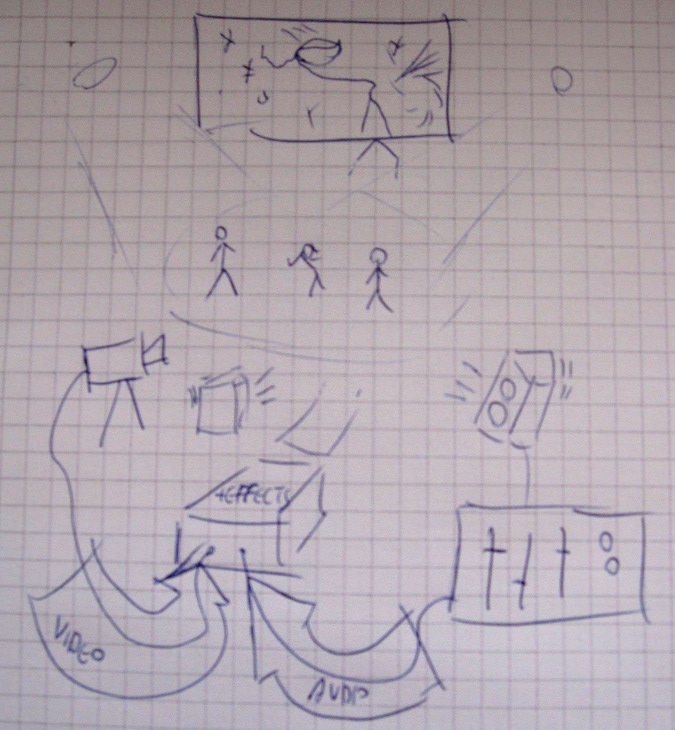 +EFFECTS
VIDEO
AUDIO